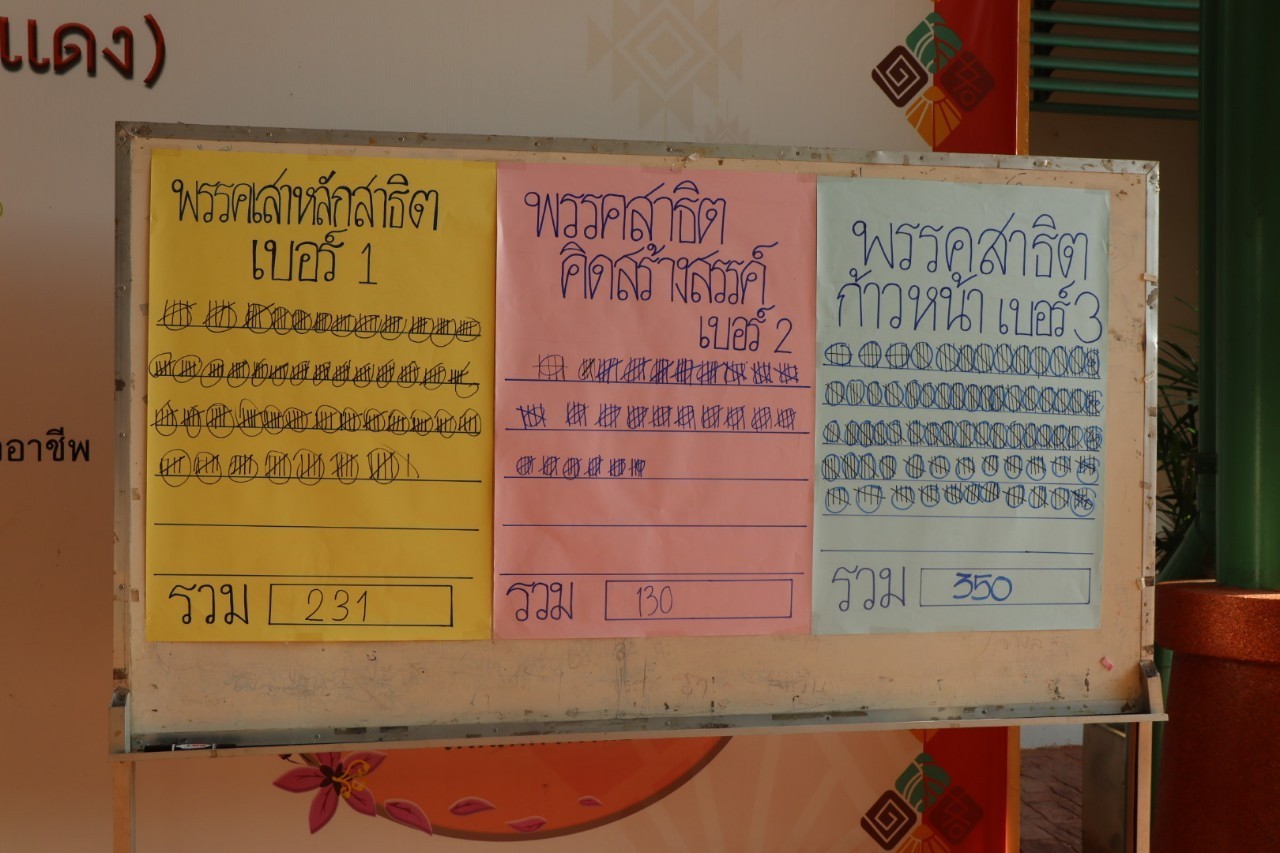 แดง)
อาชีพ
พรรคเสาหลักสาธิต
เบอร์ 1
รวม 231
พรรคสาธิต
คิดสร้างสรรค์
เบอร์ 2
รวม 130
พรรคสาธิต
ก้าวหน้า เบอร์ 3
รวม 350